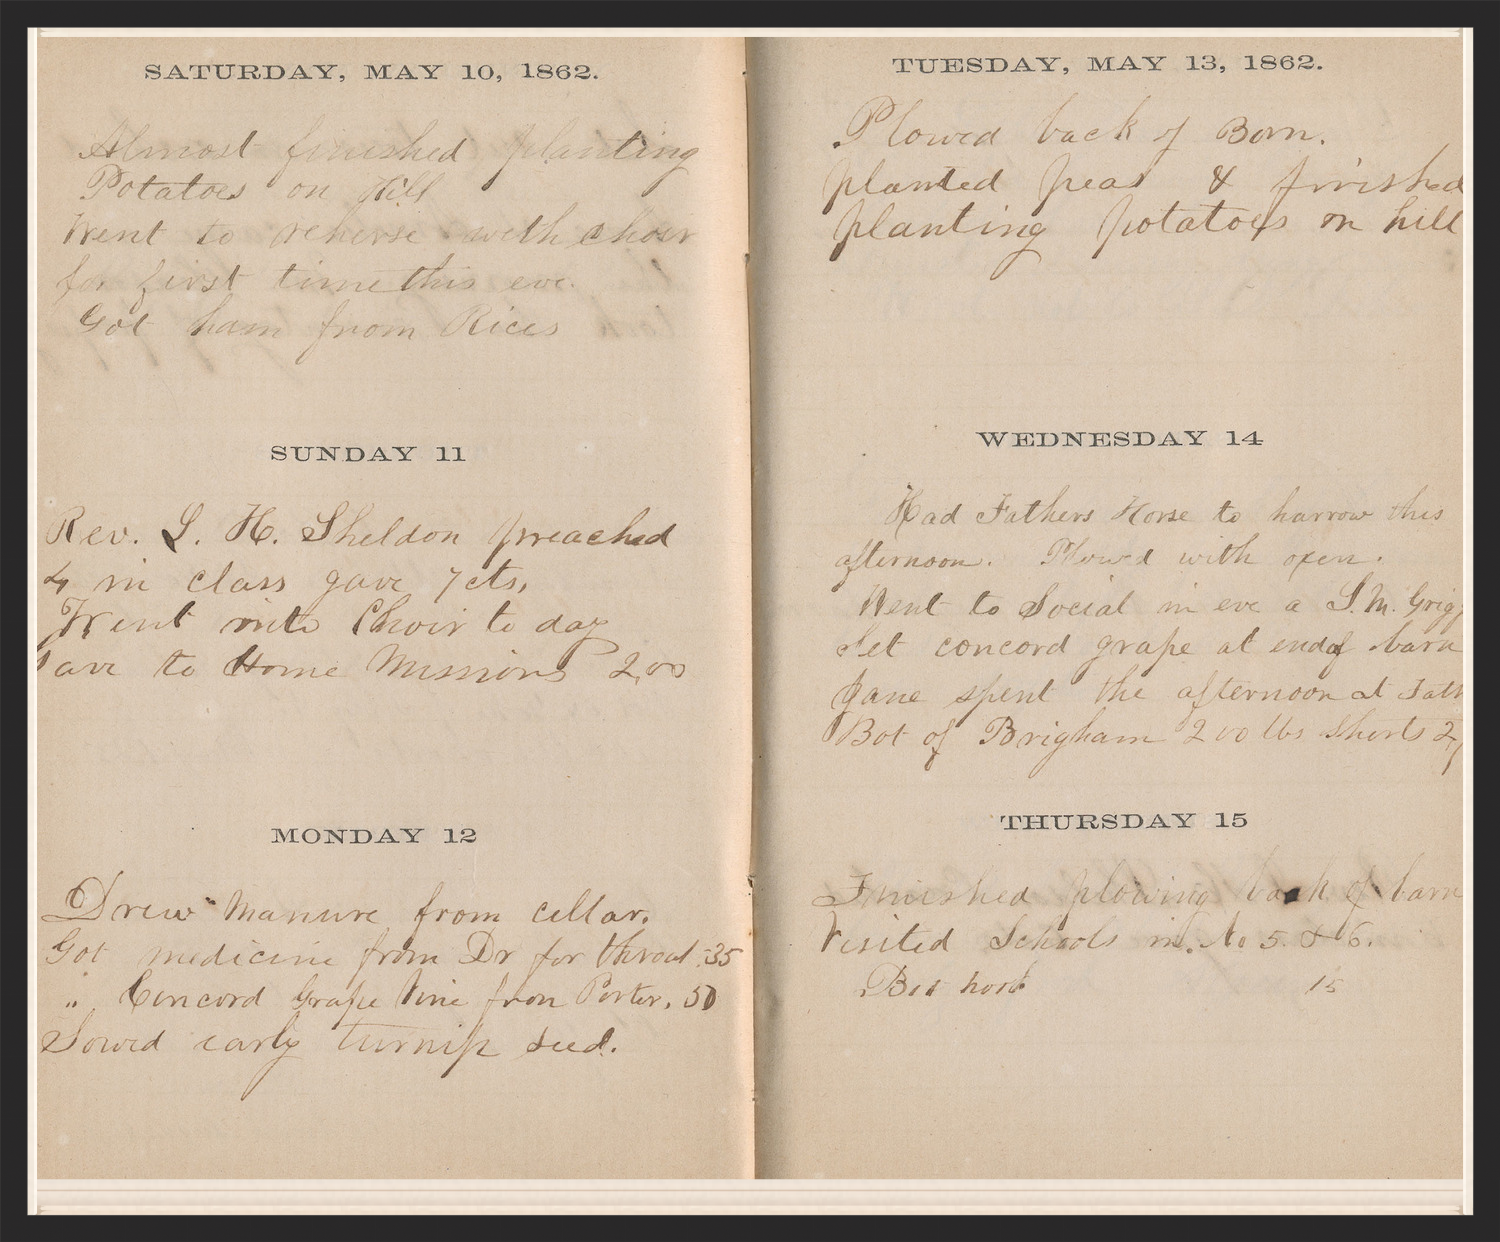 SATURDAY, MAY 10, 1862.
Almost finished planting
Potatoes on Hill
Went to reherse with choir
for first time this eve.
Got ham from Rices
SUNDAY 11
Rev. L. H. Sheldon preached
4 in class gave 7 cts,
Went into Choir to day
Gave to Home Missions 2,00
MONDAY 12
Drew Manure from cellar.
Got medicine from Dr for throat .35
" Concord Grape Vine from Porter. 50
Sowed early turnip seed.
TUESDAY, MAY 13, 1862.
Plowed back of Born.
planted peas & finished
planting potatoes on hill
WEDNESDAY 14
Had Fathers Horse to harrow this
afternoon. Plowed with oxen.
Went to Social in eve a S. M. Grigg
Set concord grape at end of barn
Jane spent the afternoon at Fath
Bot of Brigham 200 lbs Shorts 2,
THURSDAY 15
Finished plowing back of barn
Visited Schools in No 5 & 6.
Bot hook 15